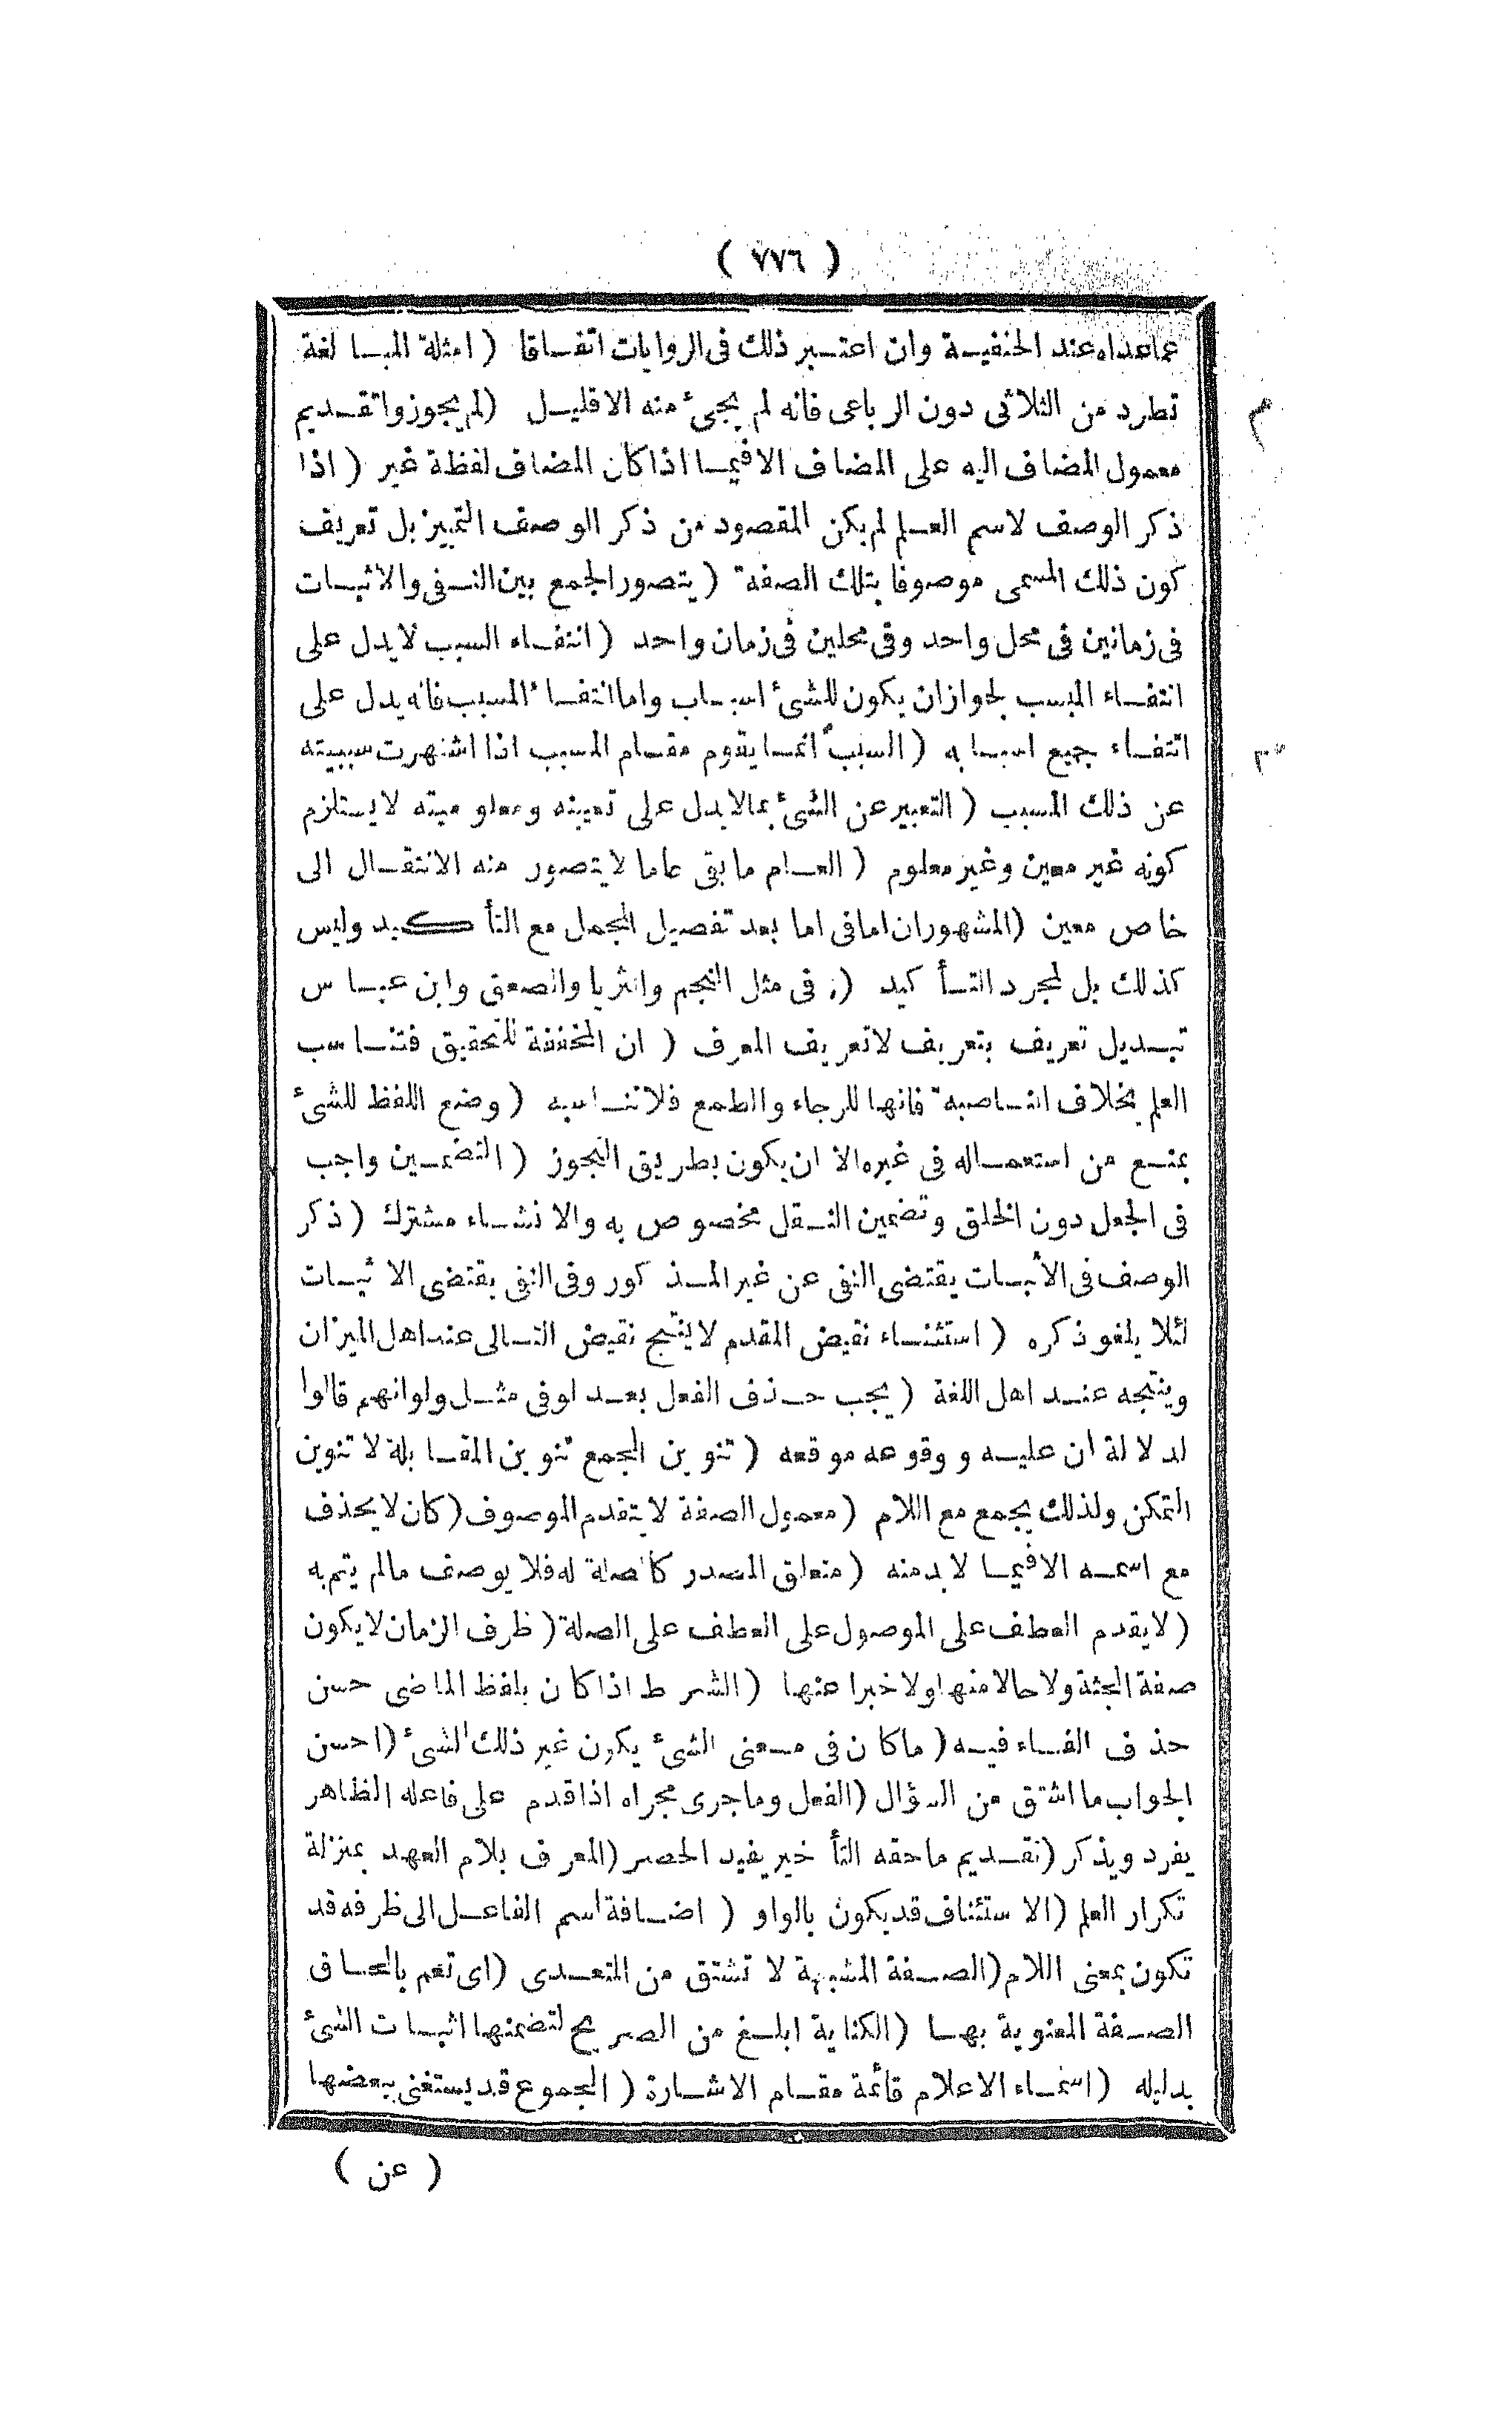 ( ٧٧٦ )
عما عداه عند الحنفيسة وان اعتسبر ذلك فى الروايات اتفساقا ( امثلة المبسا لغة
تطرد من الثلاثى دون الرباعى فانه لم يجئ منه الا قليل ( لم يجوزوا تقديم
معمول المضاف اليه على المضاف الا فيما اذا كان المضاف لفظة غير ( اذا
ذكر الوصف لاسم العلم لم يكن المقصود من ذكر الوصف التمييز بل تعريف
كون ذلك المسمى موصوفا بتلك الصفة ( يتصور الجمع بين النفى والاثبات
فى زمانين فى محل واحد وفى محلين فى زمان واحد ( انتفاء السبب لا يدل على
انتفاء المسبب لجواز ان يكون للشئ اسباب واما انتفاء المسبب فانه يدل على
انتفاء جميع اسبابه ( السبب انما يقوم مقام المسبب اذا اشتهرت سببيته
عن ذلك المسبب ( التعبير عن الشئ بما لا يدل على تعيينه ومعلوميته لا يستلزم
كونه غير معين وغير معلوم ( العام ما بقى عاما لا يتصور منه الانتقال الى
خاص معين ( المشهور ان اما فى اما بعد تفصيل المجمل مع التأكيد وليس
كذلك بل لمجرد التأكيد ( فى مثل النجم والثريا والصعق وابن عباس
تبديل تعريف بتعريف لا تعريف المعرف ( ان المخففة للتحقيق فتناسب
العلم بخلاف الناصبة فانها للرجاء والطمع فلا تناسبه ( وضع اللفظ للشئ
يمنع من استعماله فى غيره الا ان يكون بطريق التجوز ( التضمين واجب
فى الجعل دون الخلق وتضمين النقل مخصوص به والانشاء مشترك ( ذكر
الوصف فى الاثبات يقتضى النفى عن غير المذكور وفى النفى يقتضى الاثبات
لئلا يلغو ذكره ( استثناء نقيض المقدم لا ينتج نقيض التالى عند اهل الميزان
وينتجه عند اهل اللغة ( يجب حذف الفعل بعد لو فى مثل ولو انهم قالوا
لدلالة ان عليه ووقوعه موقعه ( تنوين الجمع تنوين المقابلة لا تنوين
التمكن ولذلك يجمع مع اللام ( معمول الصفة لا يتقدم الموصوف ( كان لا يحذف
مع اسمه الا فيما لا بد منه ( متعلق المصدر كالصلة له فلا يوصف ما لم يتم به
( لا يقدم العطف على الموصول على العطف على الصلة ( ظرف الزمان لا يكون
صفة الجثة ولا حالا منها ولا خبرا عنها ( الشرط اذا كان بلفظ الماضى حسن
حذف الفاء فيه ( ما كان فى معنى الشئ يكون غير ذلك الشئ ( احسن
الجواب ما اشتق من السؤال ( الفعل وما جرى مجراه اذا قدم على فاعله الظاهر
يفرد ويذكر ( تقديم ما حقه التأخير يفيد الحصر ( المعرف بلام العهد بمنزلة
تكرار العلم ( الاستئناف قد يكون بالواو ( اضافة اسم الفاعل الى ظرفه قد
تكون بمعنى اللام ( الصفة المشبهة لا تشتق من المتعدى ( اى تعم بالحاق
الصفة المعنوية بها ( الكناية ابلغ من الصريح لتضمنها اثبات الشئ
بدليله ( اسماء الاعلام قائمة مقام الاشارة ( الجموع قد يستغنى ببعضها
( عن )